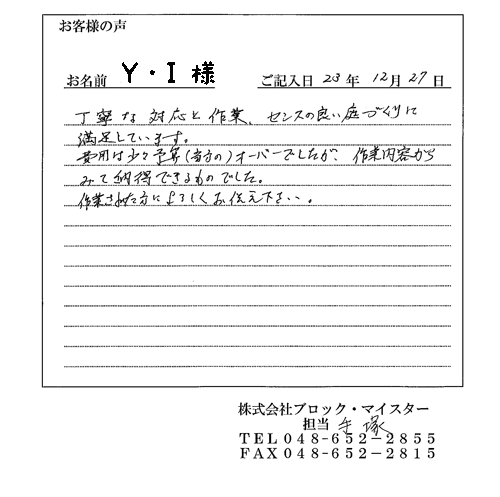 お客様の声
お名前 Y・I 様 ご記入日 23 年 12 月 27 日
丁寧な対応と作業、センスの良い庭づくりに
満足しています。
費用は少々予算(当方の)オーバーでしたが、作業内容から
みて納得できるものでした。
作業された方によろしくお伝え下さい。
株式会社ブロック・マイスター
担当 手塚
TEL 048-652-2855
FAX 048-652-2815